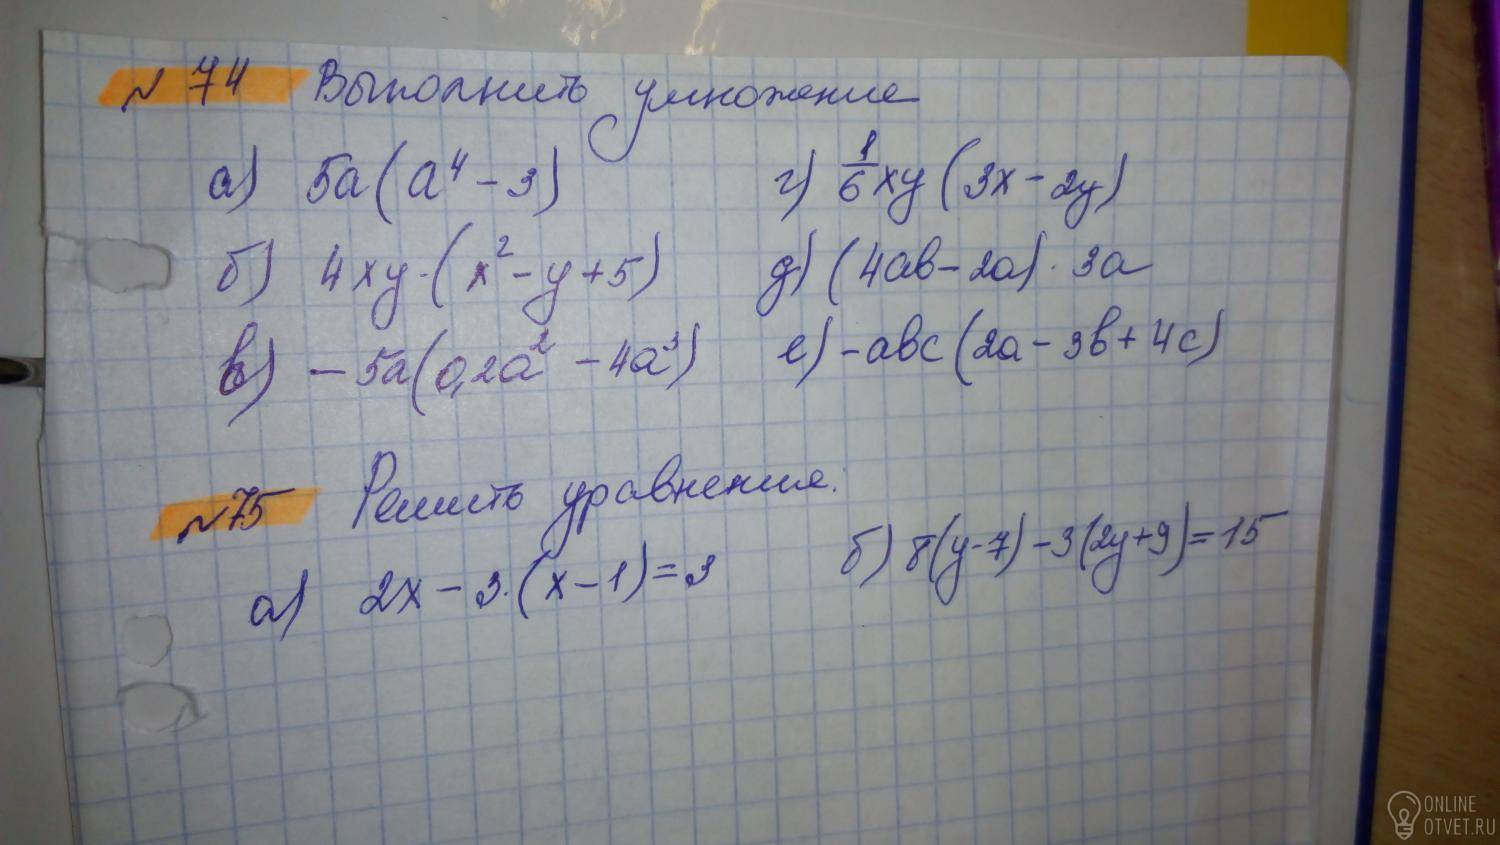 № 74 Выполнить умножение
а) 5a(a⁴ - 3)
г) 1/6 xy (3x - 2y)
б) 4xy·(x² - y + 5)
д) (4ab - 2a)·3a
в) -5a(0,2a² - 4a³)
е) -abc(2a - 3b + 4c)
№75 Решить уравнение:
а) 2x - 3·(x - 1) = 3
б) 8(y - 7) - 3(2y + 9) = 15
ONLINE
OTVET.RU